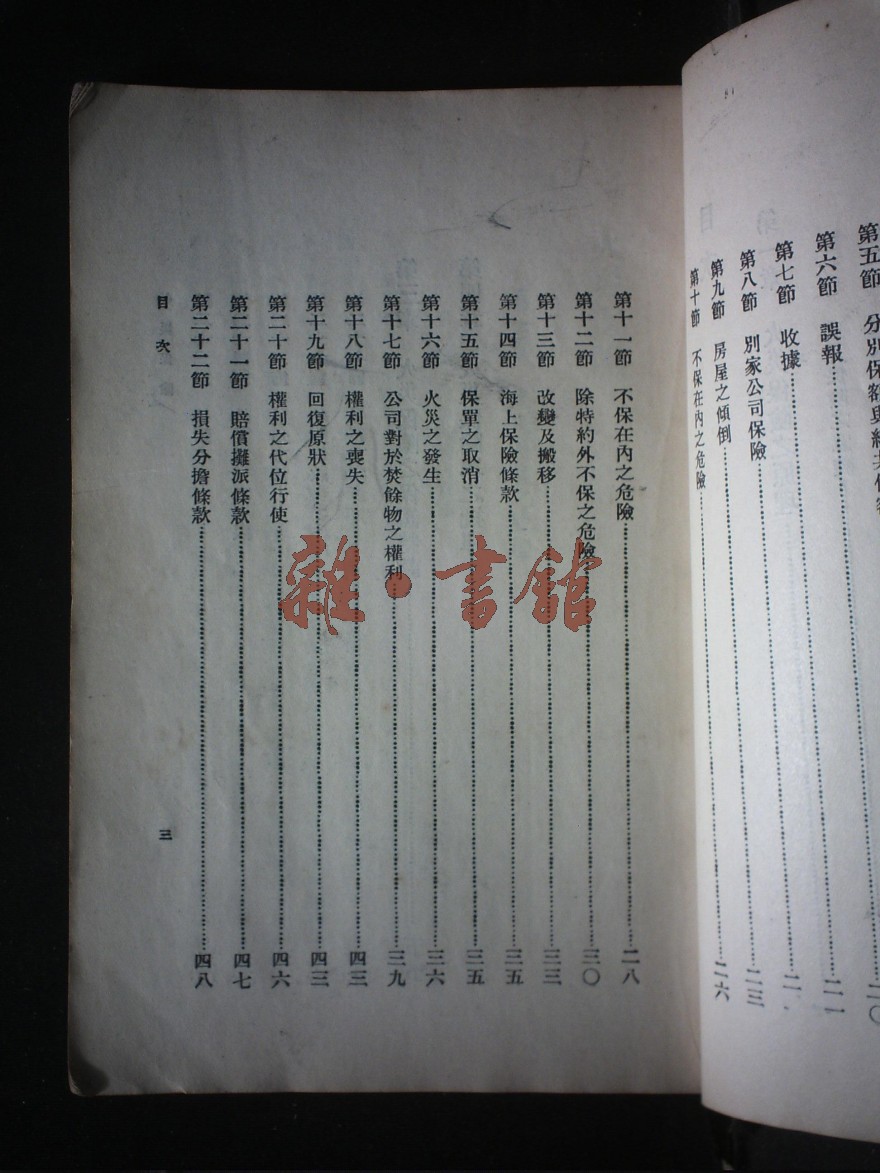 第五節 分別保額與
第六節 誤報……二一
第七節 收據……二
第八節 別家公司保險……二三
第九節 房屋之傾倒……二六
第十節 不保在內之危險
第十一節 不保在內之危險……二八
第十二節 除特約外不保之危險……三〇
第十三節 改變及搬移……三三
第十四節 海上保險條款……三五
第十五節 保單之取消……三五
第十六節 火災之發生……三六
第十七節 公司對於焚餘物之權利……三九
第十八節 權利之喪失……四三
第十九節 回復原狀……四三
第二十節 權利之代位行使……四六
第二十一節 賠償攤派條款……四七
第二十二節 損失分擔條款……四八
目次 三
雜·書館